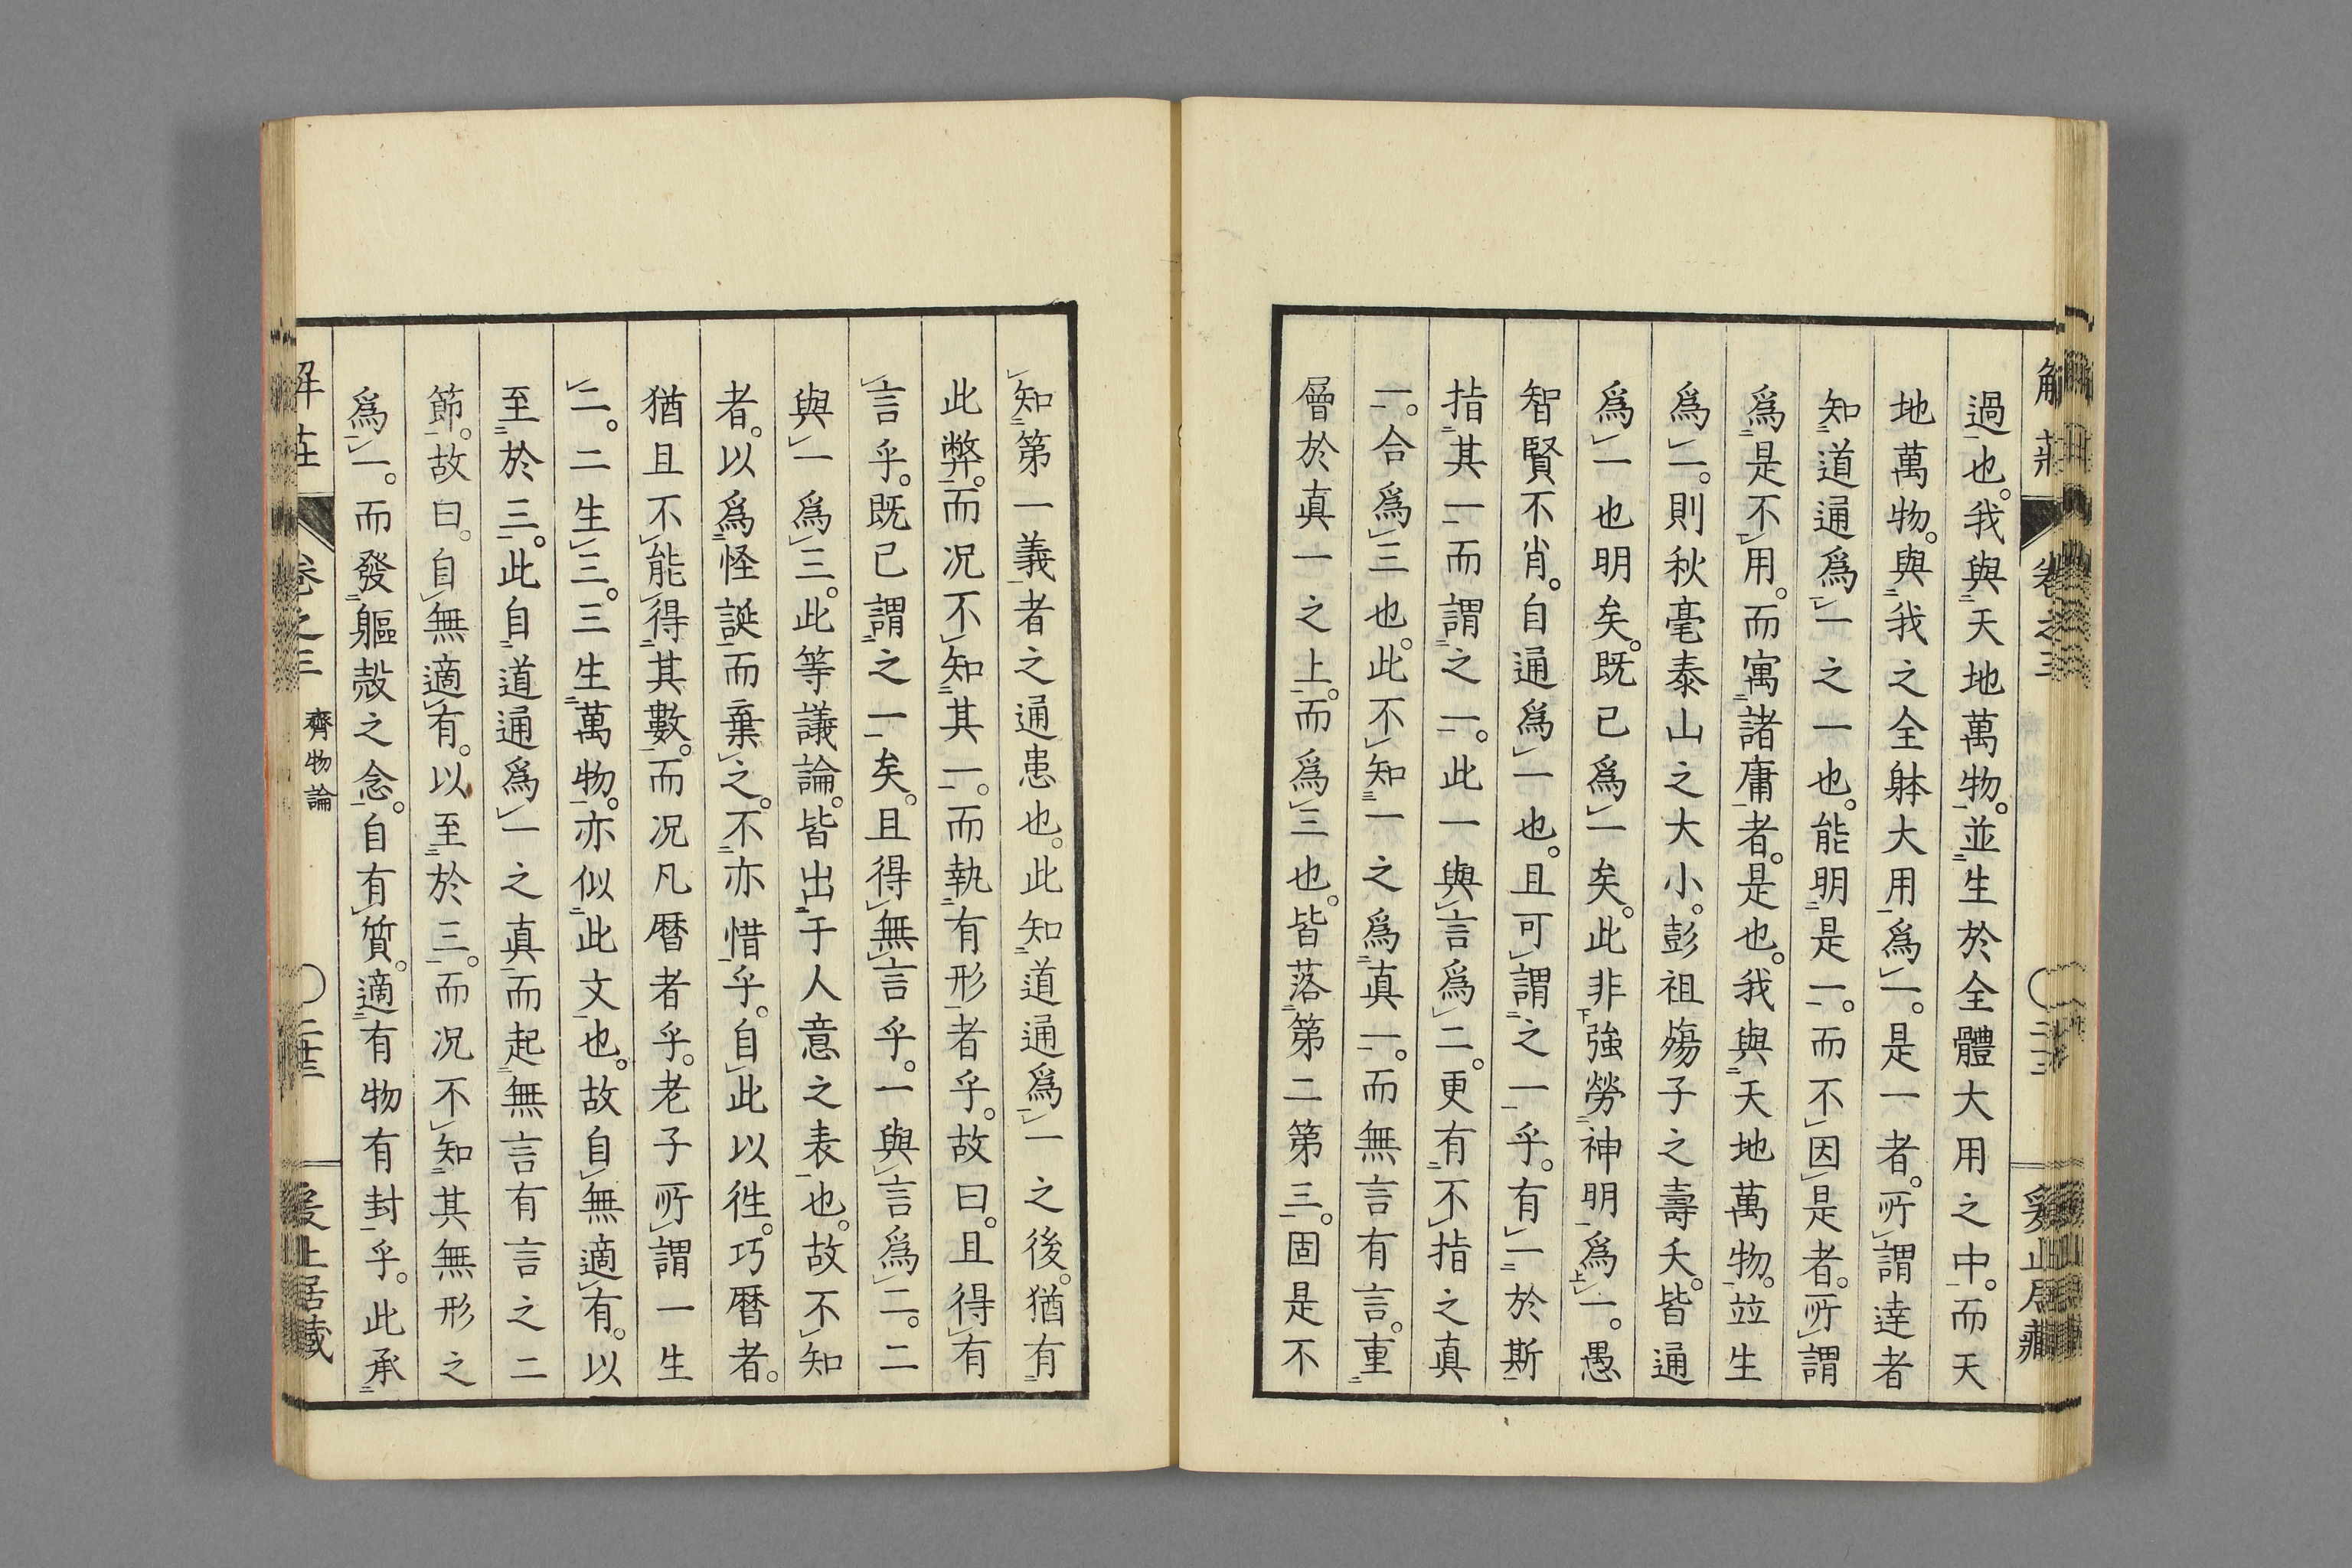 過也。我與天地萬物。並生於全體大用之中。而天
地萬物。與我之全躰大用爲一。是一者。所謂達者
知道通爲一之一也。能明是一。而不因是者。所謂
爲是不用。而寓諸庸者。是也。我與天地萬物。竝生
爲一。則秋毫泰山之大小。彭祖殤子之壽夭。皆通
爲一也明矣。既已爲一矣。此非強勞神明爲一。愚
智賢不肖。自通爲一也。且可謂之一乎。有一於斯
指其一而謂之一。此一與言爲二。更有不指之真
一。合爲三也。此不知一之爲真一。而無言有言。重
層於真一之上。而爲三也。皆落第二第三。固是不
知第一義者之通患也。此知道通爲一之後。猶有
此弊。而况不知其一。而執有形者乎。故曰。且得有
言乎。既已謂之一矣。且得無言乎。一與言爲二。二
與一爲三。此等議論。皆出于人意之表也。故不知
者。以爲怪誕而棄之。不亦惜乎。自此以徃。巧曆者。
猶且不能得其數。而况凡曆者乎。老子所謂一生
二。二生三。三生萬物。亦似此文也。故自無適有。以
至於三。此自道通爲一之真而起無言有言之二
節。故曰。自無適有。以至於三。而况不知其無形之
爲一。而發軀殼之念。自有質。適有物有封乎。此承
解莊 卷之三 齊物論